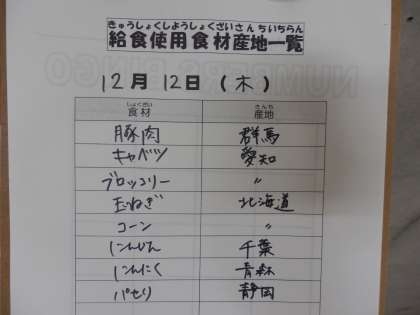 きゅうしょくしようしょくざいさんちいちらん
給食使用食材産地一覧
12月 12日 (木)
しょくざい さんち
食材 産地
豚肉 群馬
キャベツ 愛知
ブロッコリー 〃
玉ねぎ 北海道
コーン 〃
にんじん 千葉
にんにく 青森
パセリ 静岡
NUMBERS BINGO